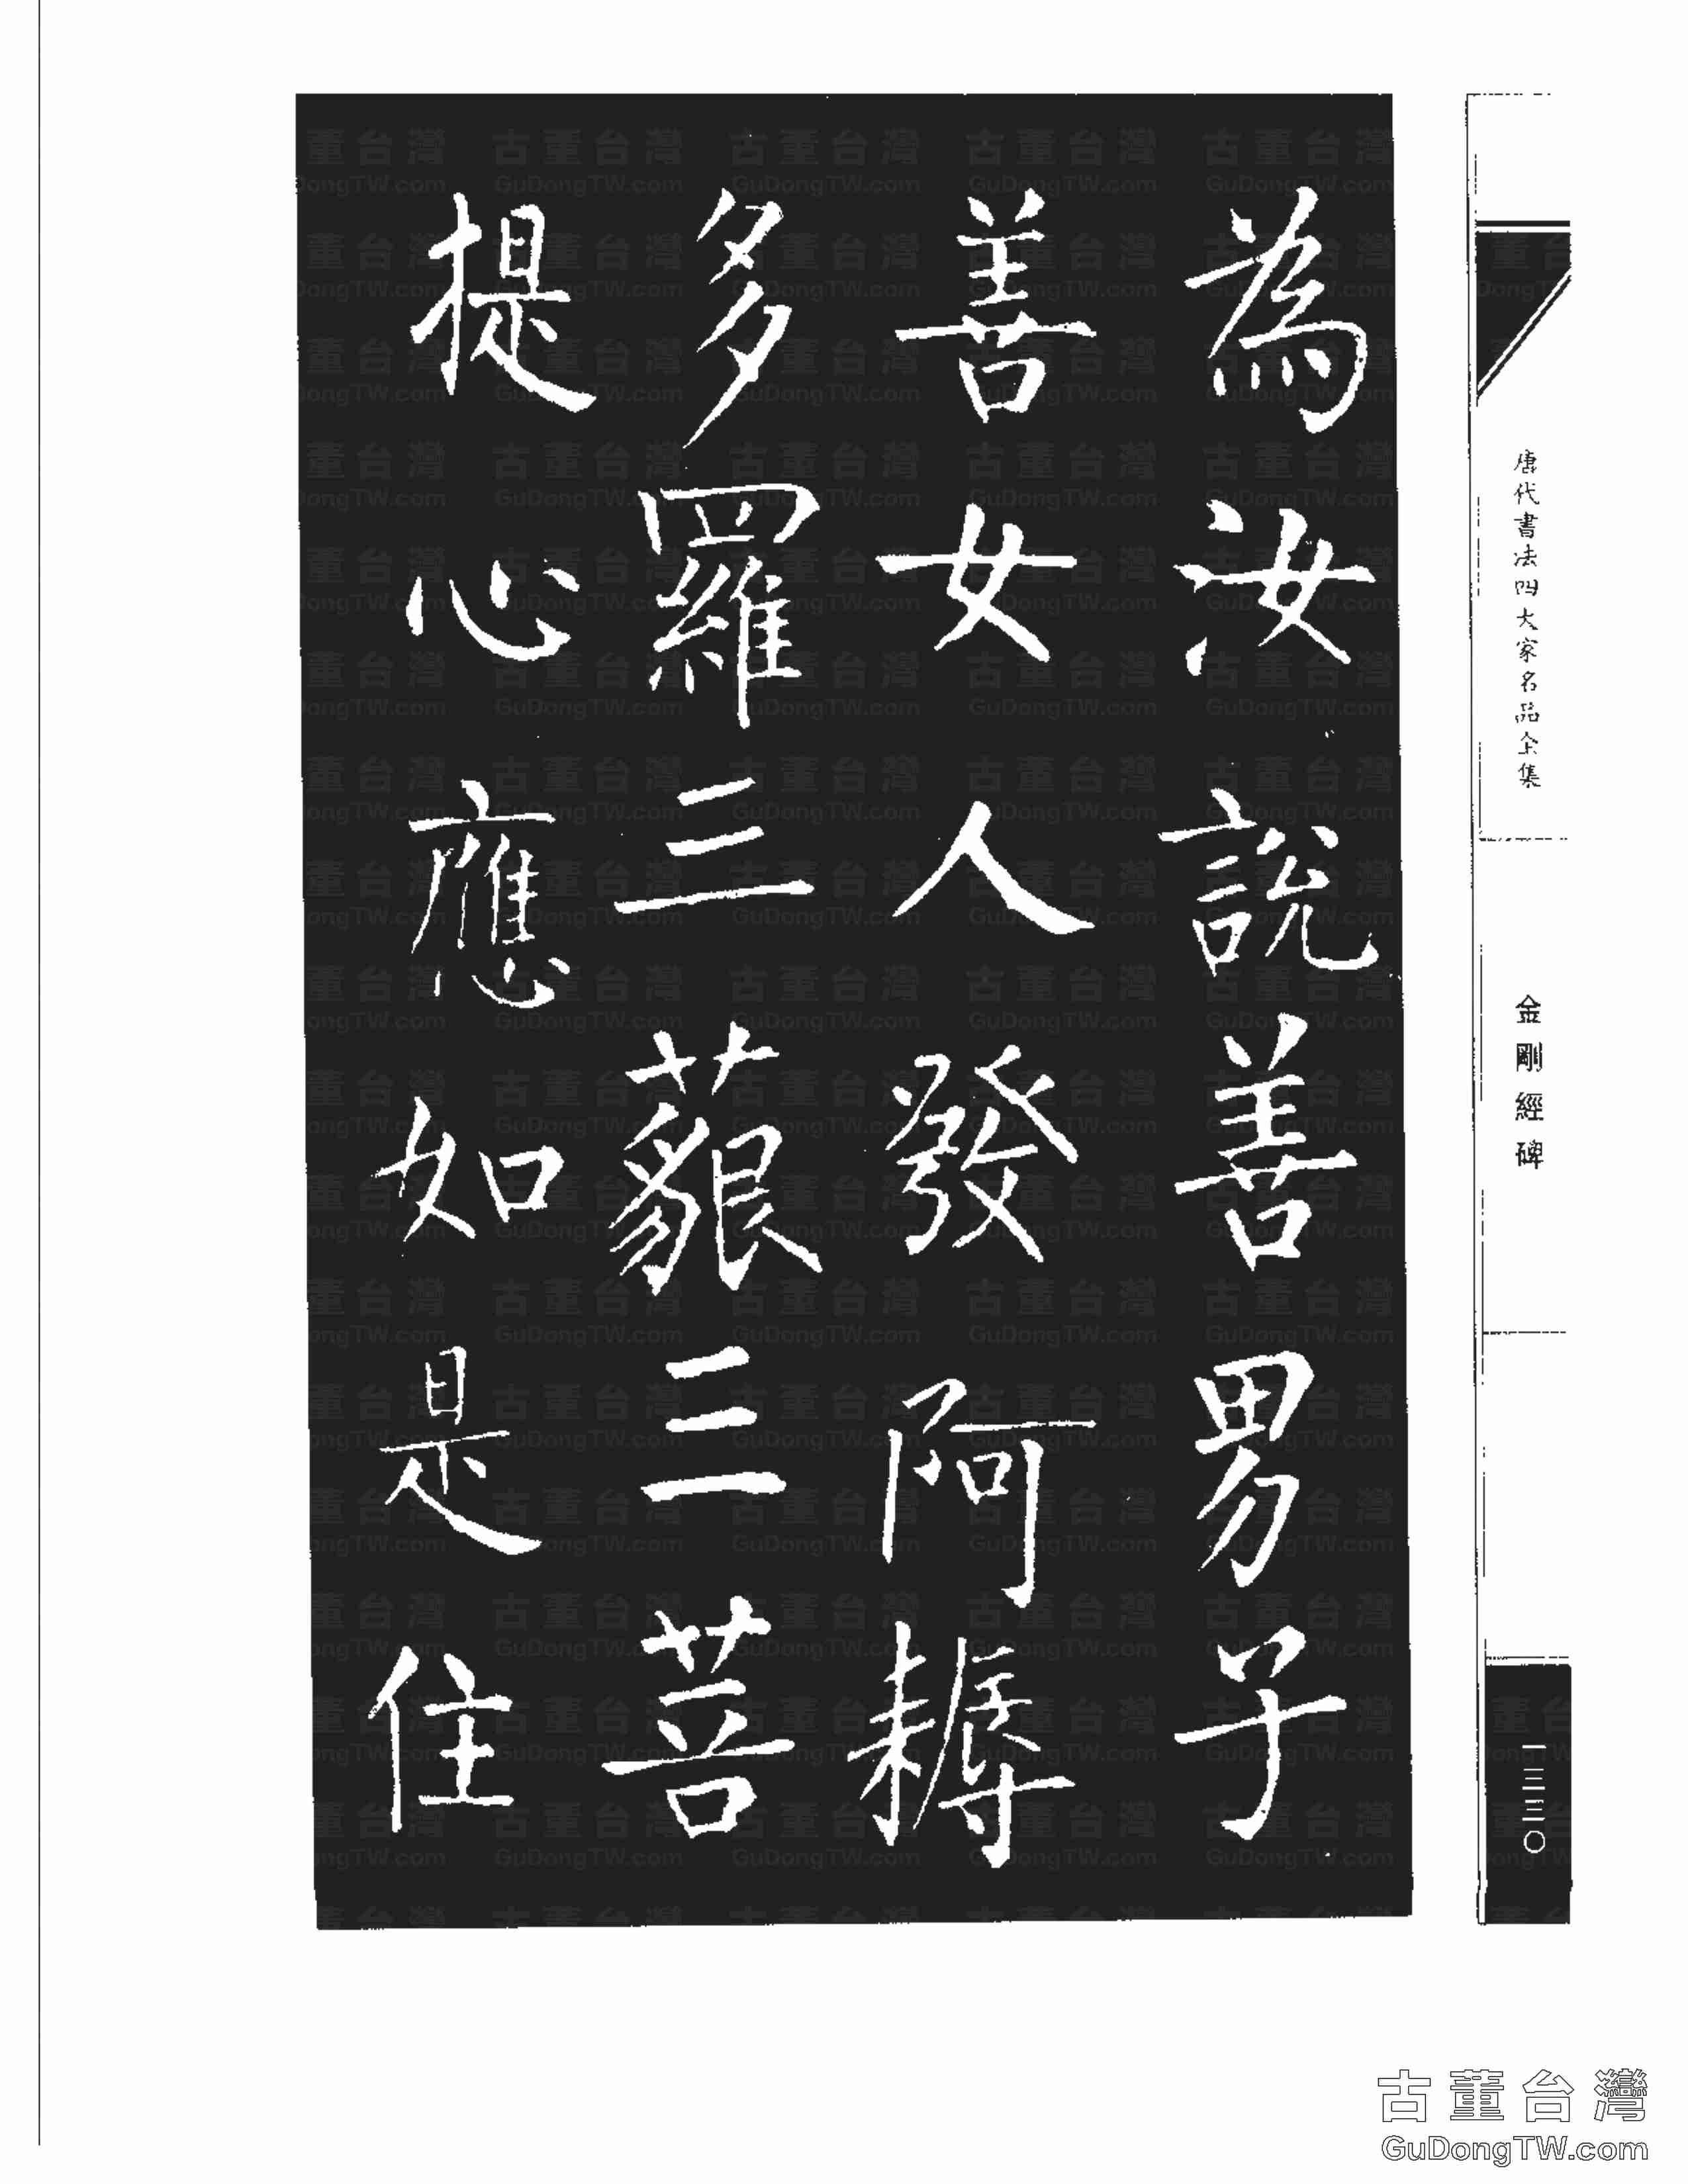 唐代書法四大家名品全集
金剛經碑
一三三〇
為汝說善男子
善女人發阿耨
多羅三藐三菩
提心應如是住
古董台灣
GuDongTW.com